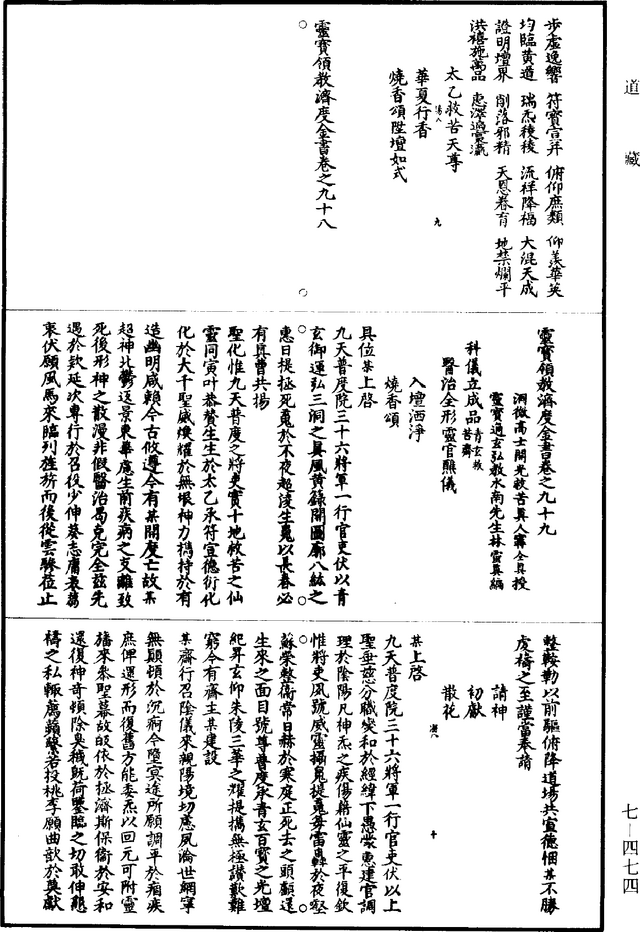 道藏
步虛逸響　符寶宣行　俯仰庶類　仰羨華英
均臨黃道　瑞炁稜稜　流祥降福　大混天成
證明壇界　削落邪精　天恩眷育　地禁爛平
洪禧施萬品　惠澤遍寰瀛
太乙救苦天尊
華夏行香
燒香頌陞壇如式
九
靈寶領教濟度金書卷之九十八
靈寶領教濟度金書卷之九十九
洞微高士開光救苦真人甯全真授
靈寶通玄弘教水南先生林靈真編
科儀立成品青玄救苦齋
醫治全形靈官醮儀
入壇洒淨
燒香頌
具位某上啓
九天普度院三十六將軍一行官吏伏以青
玄御運弘三洞之真風黃籙開圖廓八紘之
惠日提拯死魂於不夜超淩生鬼以長春必
有真曹共揚
聖化惟九天普度之將吏實十地救苦之仙
靈同寅叶恭贊生生於太乙承符宣德衍化
化於大千聖威煥耀於無垠神力撝持於有
造幽明咸賴今古攸遵今有某關度亡故某
超神北鬱返景東華慮生前疾病之支離致
死後形神之散漫非假醫治曷克完全茲先
遇於欽延次專行於召役少伸葵志庸表芻
衷伏願風馬來臨列旌旂而後從雲驂莅止
整鞍勒以前驅俯降道場共宣德悃某不勝
虔禱之至謹當奉請
請神
初獻
散花
某上啓
九天普度院三十六將軍一行官吏伏以上
聖垂慈分職燮和於經緯下愚蒙惠建官調
理於陰陽凡神炁之疾傷藉仙靈之平復欽
惟將吏風號威靈攝鬼提魂每雷轟於夜壑
蘇榮整衛常日赫於寒庭正死去之頭顱還
生來之面目號尊普度承青玄百寶之光壇
紀昇玄仰朱陵三華之耀提攜無極讚歎難
窮今有齋主某建設
某齋行召陰儀來親陽境切慮夙淪世網寧
無顛頓於沉痾今墮冥途所願調平於痼疾
庶俾還形而復舊方能委炁以回元可附靈
旛來參聖幕故皈依於拯濟斯保衛於安和
還復神奇頓除臭穢既荷鑒臨之切敢伸懇
禱之私輒薦蘋蘩若投桃李願曲歆於奠獻
十
七—四七四